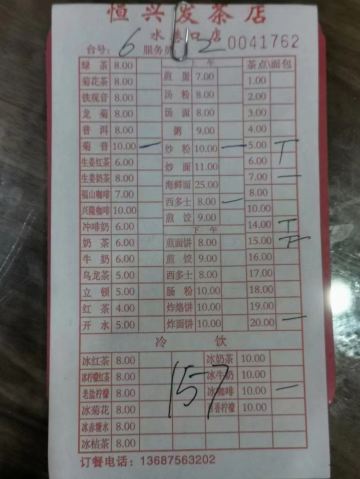 恒兴发茶店
水巷口店
台号: 6 服务员 0041762
绿茶 8.00 上午 茶点/面包
菊花茶 8.00 煎面 7.00 1.00
铁观音 8.00 汤粉 8.00 2.00
龙菊 8.00 汤面 8.00 3.00
普洱 8.00 粥 9.00 4.00
菊普 10.00 炒粉 10.00 5.00
生姜红茶 6.00 炒面 11.00 6.00
生姜奶茶 8.00 海鲜面 25.00 7.00
福山咖啡 7.00 西多士 8.00 8.00
兴隆咖啡 10.00 煎饺 9.00 10.00
冲啡奶 6.00 下午 14.00
奶茶 6.00 煎面饼 8.00 15.00
牛奶 6.00 煎饺 9.00 16.00
乌龙茶 5.00 西多士 8.00 17.00
立顿 5.00 肠粉 10.00 18.00
红茶 4.00 炸烙饼 10.00 19.00
开水 5.00 炸面饼 10.00 20.00
冷饮
冰红茶 8.00 冰奶茶 10.00
冰柠檬红茶 8.00 冰牛奶 10.00
老盐柠檬 8.00 冰咖啡 10.00
冰菊花 8.00 香柠檬 10.00
冰赤糖水 8.00
冰桔茶 8.00
151
订餐电话: 13687563202